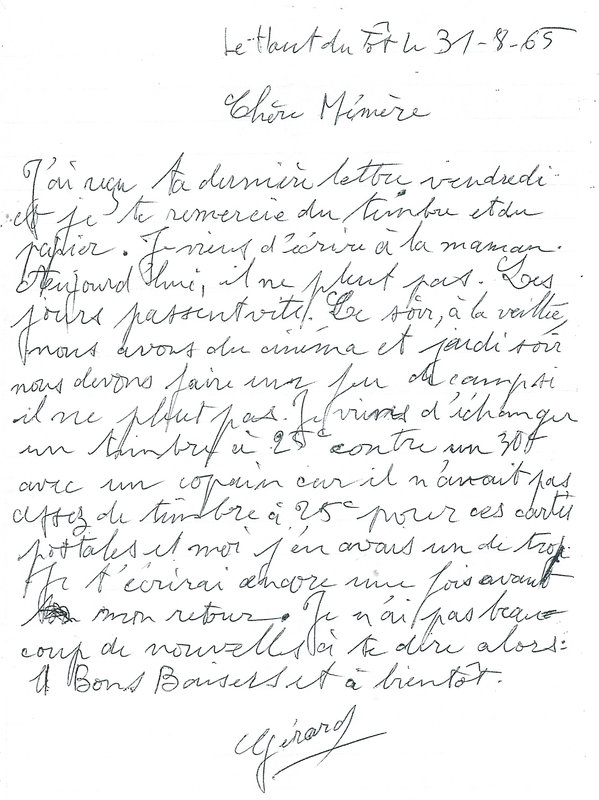 Le Haut du Tôt le 31-8-65
Chère Mémère
J'ai reçu ta dernière lettre vendredi
et je te remercie du timbre et du
papier. Je viens d'écrire à la maman.
Aujourd'hui, il ne pleut pas. Les
jours passent vite. Le soir, à la veillée,
nous avons du cinéma et jeudi soir
nous devons faire un feu de camp si
il ne pleut pas. Je viens d'échanger
un timbre à 25c contre un 30c
avec un copain car il n'avait pas
assez de timbre à 25c pour ces cartes
postales et moi j'en avais un de trop
Je t'écrirai encore une fois avant
mon retour. Je n'ai pas beau-
coup de nouvelles à te dire alors:
Bons Baisers et à bientôt.
Gérard